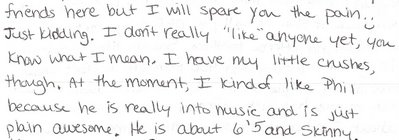 friends here but I will spare you the pain :)
Just kidding. I don't really "like" anyone yet, you
know what I mean. I have my little crushes,
though. At the moment, I kind of like Phil
because he is really into music and is just
plain awesome. He is about 6'5 and skinny.